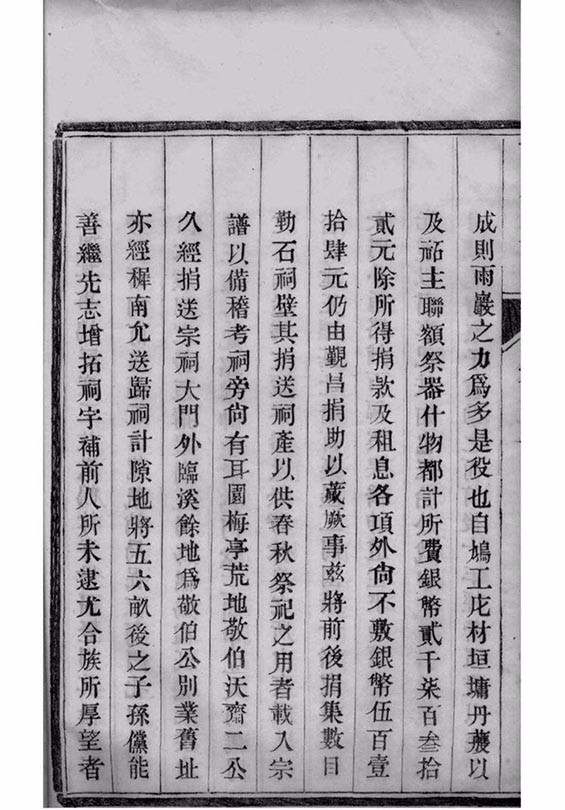 成則雨巖之力爲多是役也自鳩工庀材垣墉丹雘以
及祏主聯額祭器什物都計所費銀幣貳千柒百叁拾
貳元除所得捐款及租息各項外尙不敷銀幣伍百壹
拾肆元仍由觀昌捐助以蕆厥事兹將前後捐集數目
勒石祠壁其捐送祠產以供春秋祭祀之用者載入宗
譜以備稽考祠旁尙有耳園梅亭荒地敬伯沃齋二公
久經捐送宗祠大門外臨溪餘地爲敬伯公別業舊址
亦經樨南允送歸祠計隙地將五六畝後之子孫儻能
善繼先志增拓祠宇補前人所未逮尤合族所厚望者